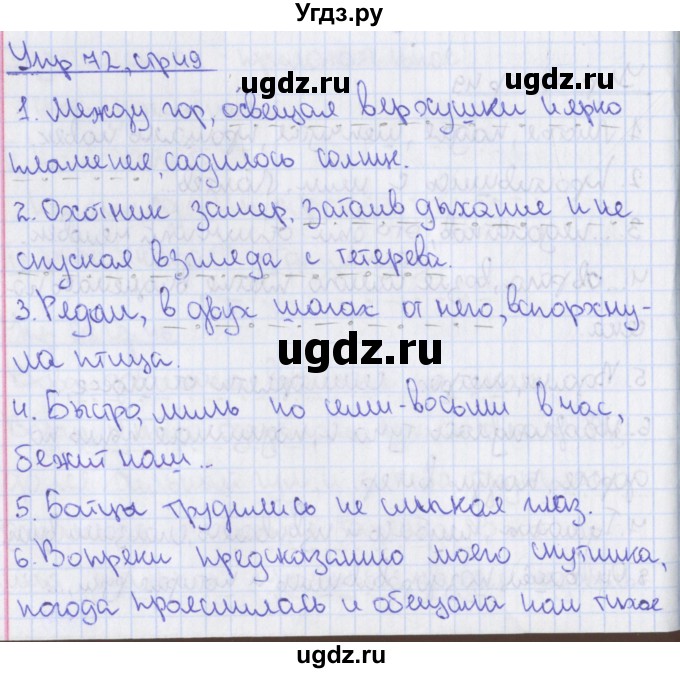 Угдз.ру
Упр 72, стр 49
ugdz.ru
1. Между гор, освещая верхушки и ярко
пламенея, садилось солнце.
2. Охотник замер, затаив дыхание и не
спуская взгляда с тетерева.
3. Рядом, в двух шагах от него, вспорхну-
ugdz.ru
ла птица.
4. Быстро, миль по семи-восьми в час,
бежит наш...
5. Бойцы трудились не смыкая глаз.
ugdz.ru
6. Вопреки предсказанию моего спутника,
погода прояснилась и обещала нам тихое
ugdz.ru